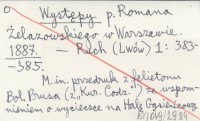 Występy p. Romana
Żelazowskiego w Warszawie.
1887. — Ruch (Lwów) 1: 383-
-385.
M. in. przedruk z felietonu
Bol. Prusa ("Kur. Codz.") ze wspom-
nieniem o wycieczce na Halę Gąsienicową